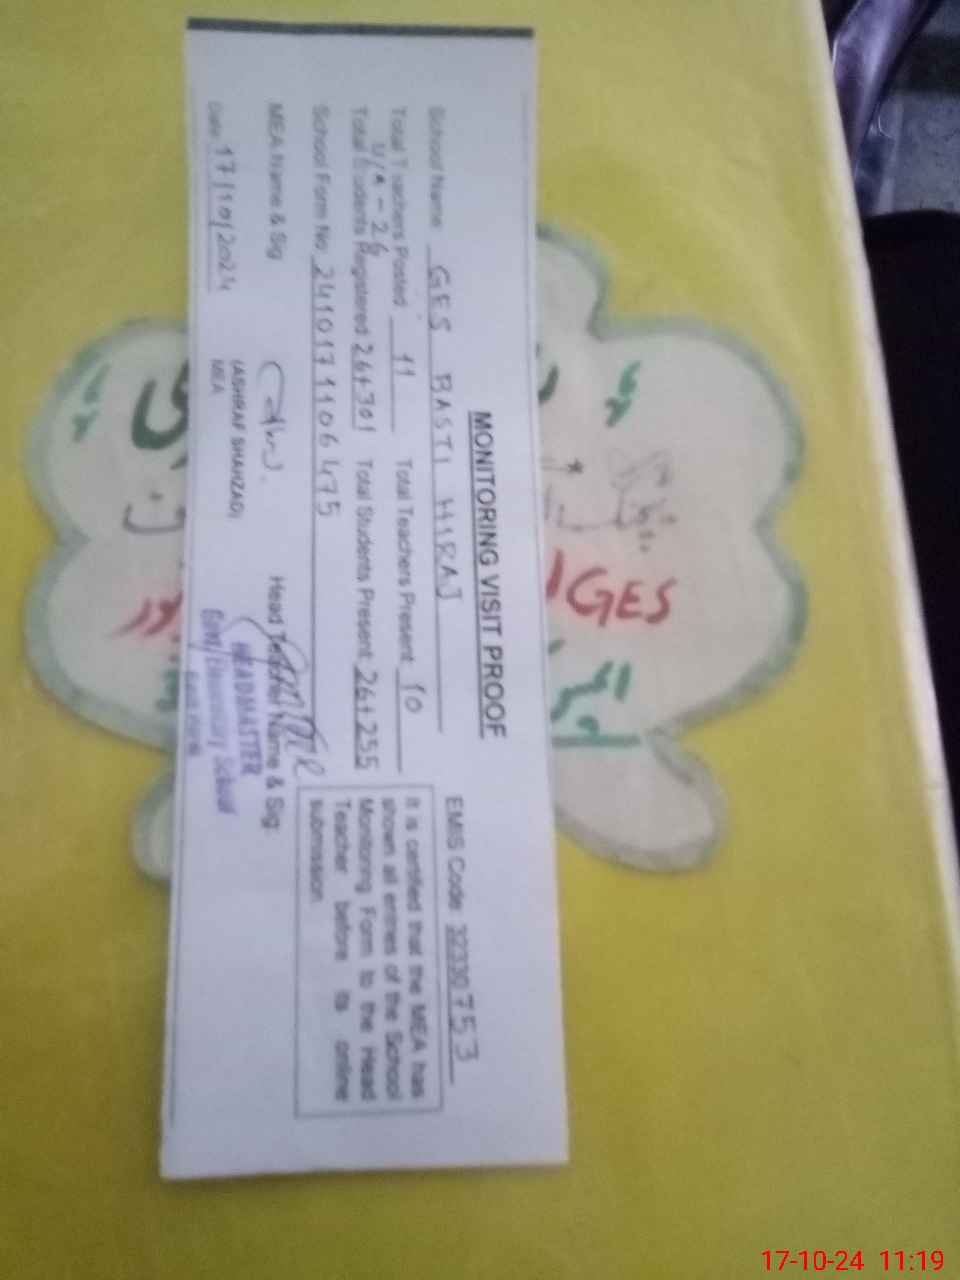 MONITORING VISIT PROOF
School Name GES BASTI HIRAJ EMIS Code 32330753
Total Teachers Posted 11 Total Teachers Present 10
Total Students Registered 26+301 Total Students Present 26+255
School Form No 2410171106475
MEA Name & Sig
(ASHRAF SHAHZAD)
MEA
Head Teacher Name & Sig:
HEADMASTER
Govt Elementary School
Date 17/10/2024
It is certified that the MEA has
shown all entries of the School
Monitoring Form to the Head
Teacher before its online
submission
GES
17-10-24 11:19